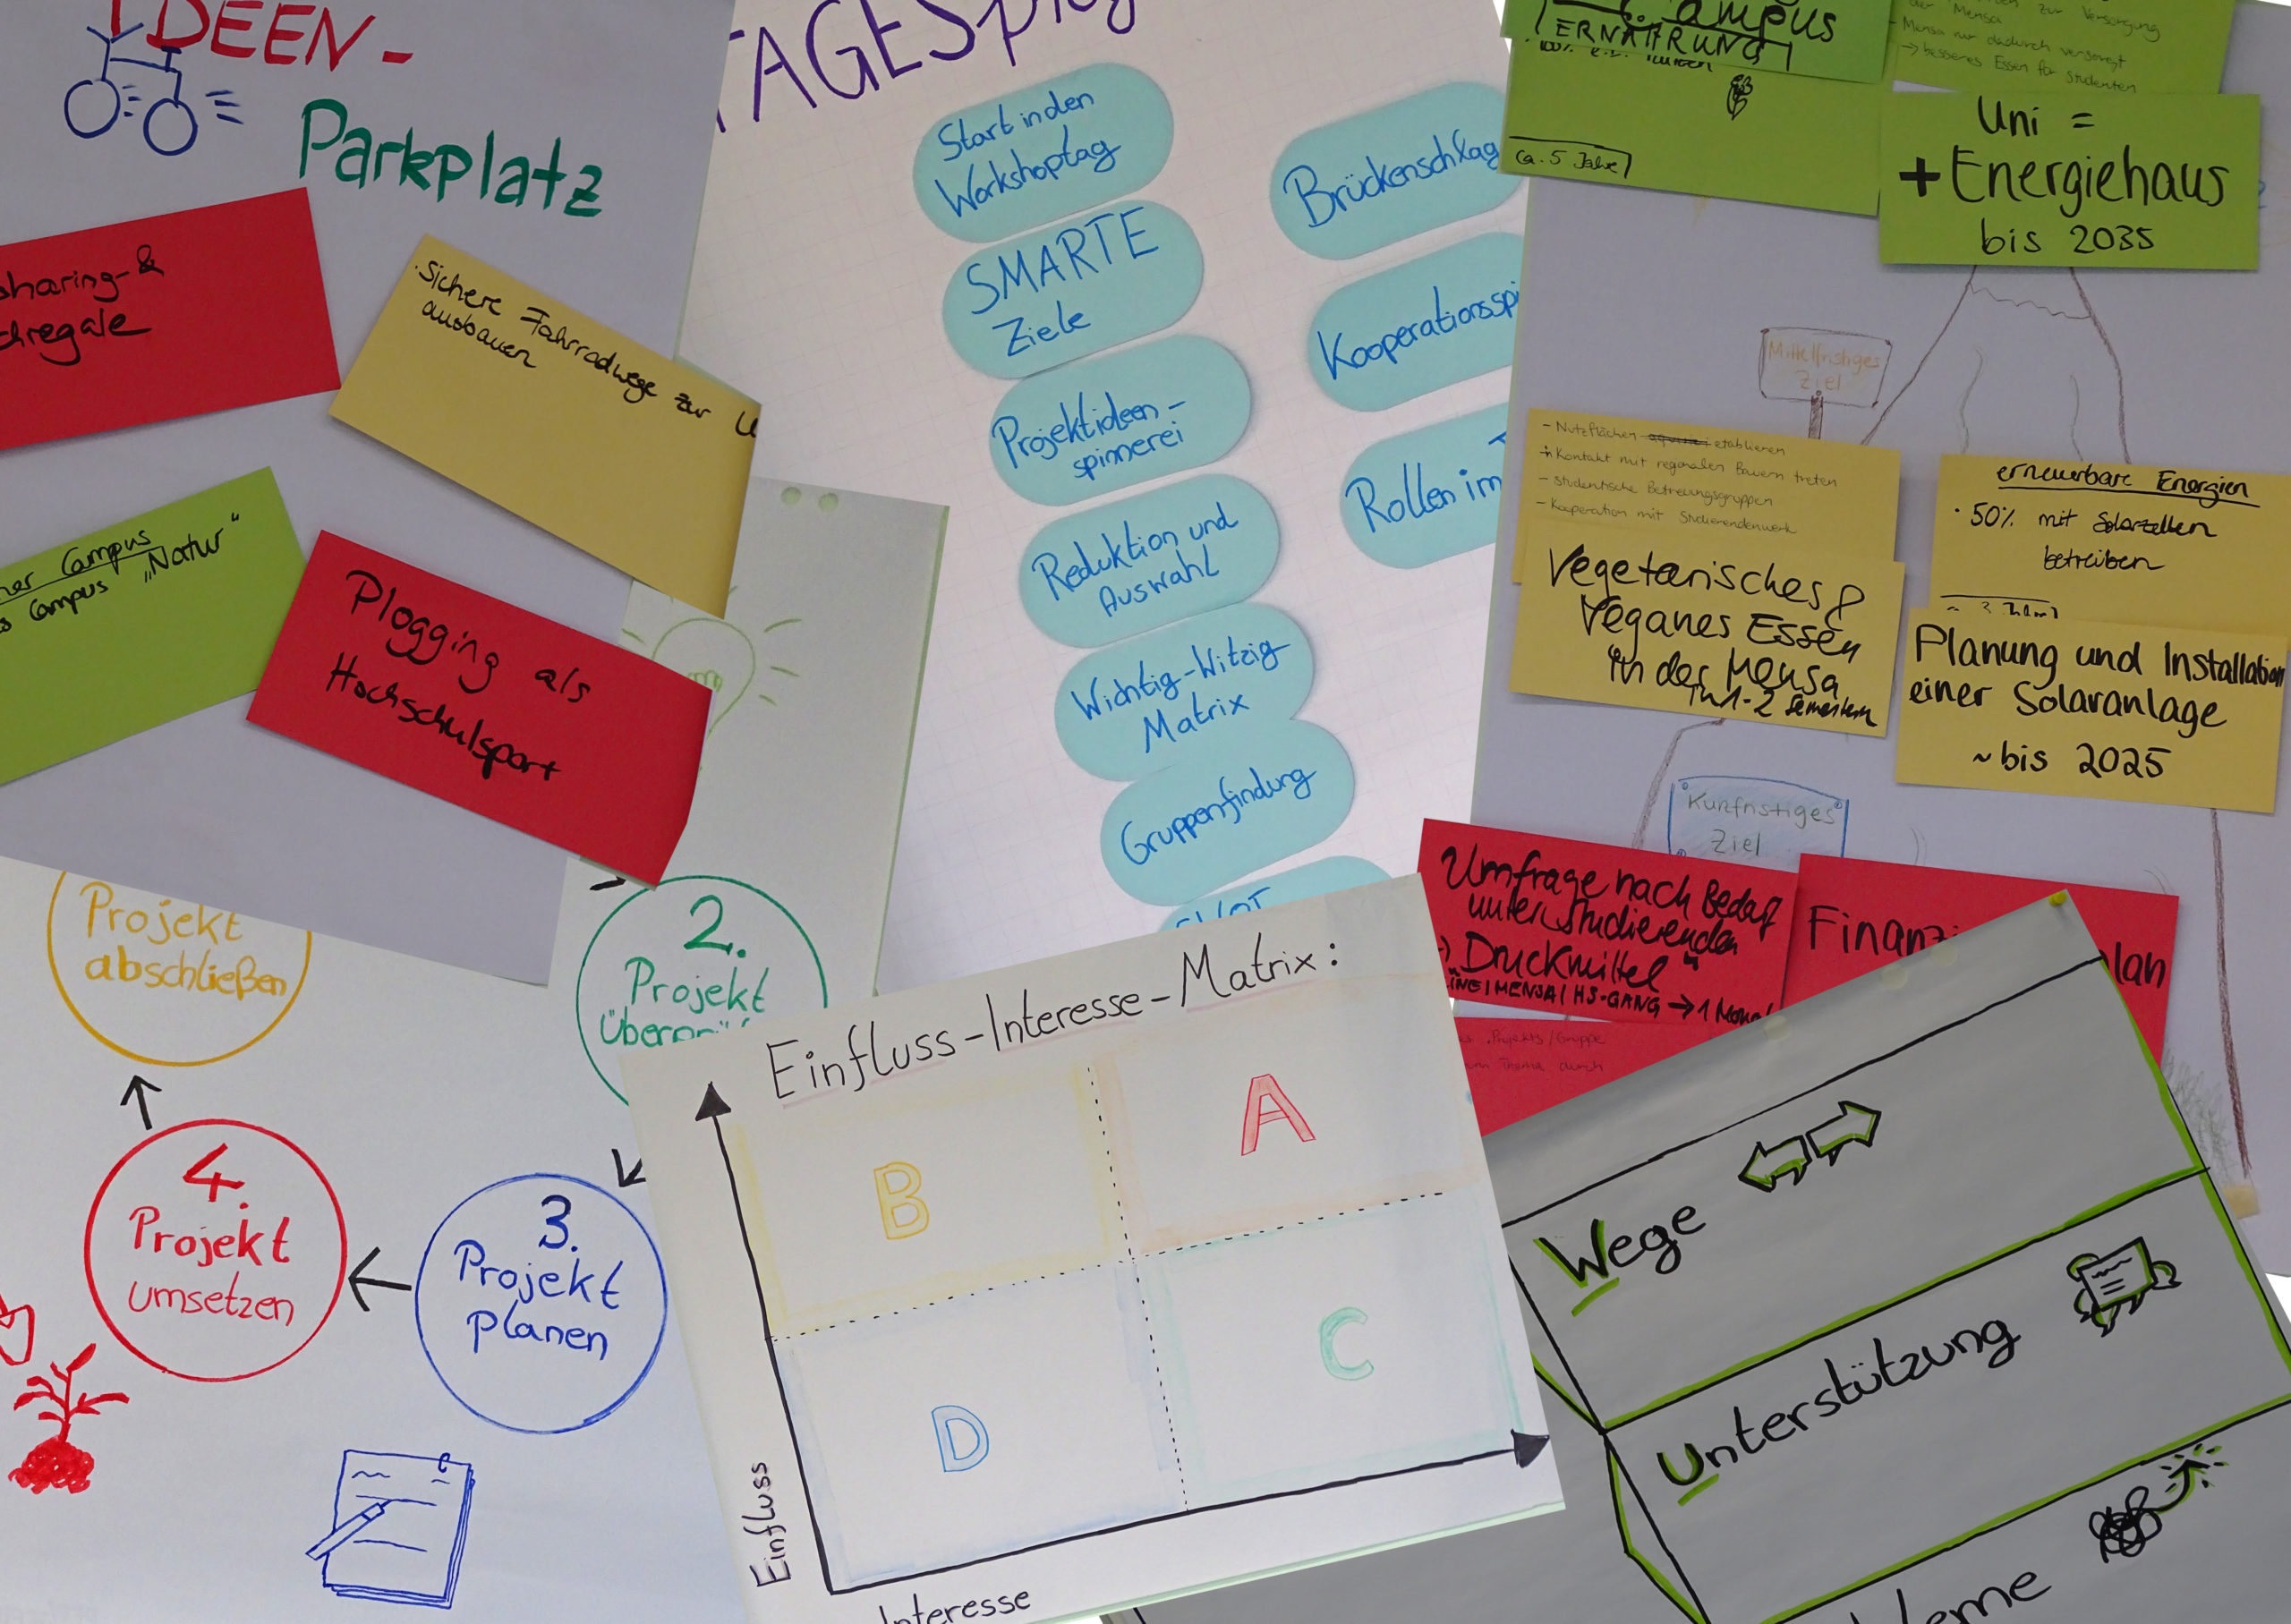 IDEEN-
Parkplatz
sharing- &
Sichere Fahrradwege zur
ausbauen
Campus
Campus "Natur"
Plogging als
Hochschulsport
Start in den
Workshoptag
SMARTE
Ziele
Projektideen-
spinnerei
Reduktion und
Auswahl
Wichtig-Witzig
Matrix
Gruppenfindung
Brückenschlag
Rollen im
Campus
ERNÄHRUNG
ca. 5 Jahre
zur Versorgung
der Mensa
Mensa nur dadurch versorgt
→ besseres Essen für Studenten
Uni =
+Energiehaus
bis 2035
Mittelfristiges
Ziel
- Nutzflächen etablieren
Kontakt mit regionalen Bauern treten
- studentische Betreuungsgruppen
- Kooperation mit Studierendenwerk
Vegetarisches &
Veganes Essen
in der Mensa
in 1-2 Semestern
erneuerbare Energien
· 50% mit Solarzellen
betreiben
Planung und Installation
einer Solaranlage
~bis 2025
Kurzfristiges
Ziel
Umfrage nach Bedarf
unter Studierenden
"Druckmittel"
MENSA | HS-GANG → 1 Monat
Projekts/Gruppe
Thema durch
Projekt
abschließen
2.
Projekt
3.
Projekt
planen
4.
Projekt
umsetzen
Einfluss-Interesse-Matrix:
B
A
D
C
Einfluss
Interesse
Wege
Unterstützung